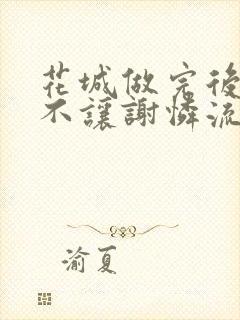 花城做完後
不讓謝憐流
渝夏